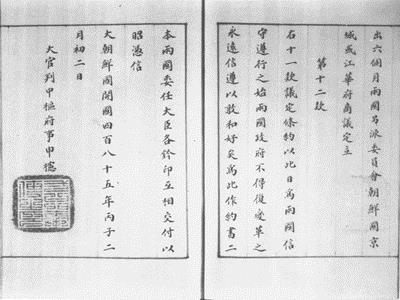 出六個月兩國另派委員會朝鮮國京
城或江華府商議定立
第十二款
右十一款議定條約以此日爲兩國信
守遵行之始兩國政府不得復變革之
永遠信遵以敦和好矣爲此作約書二
本兩國委任大臣各鈐印互相交付以
昭憑信
大朝鮮國開國四百八十五年丙子二
月初二日
大官判中樞府事申櫶